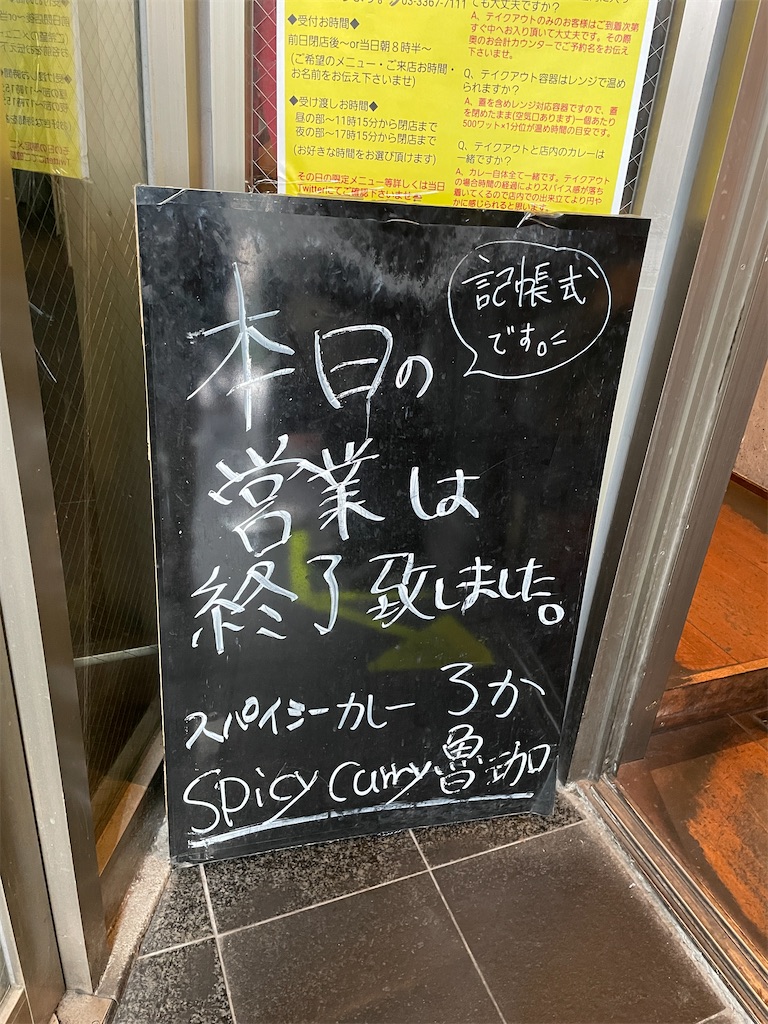 03-3367-7111
◆受付お時間◆
前日閉店後〜or当日朝8時半〜
(ご希望のメニュー・ご来店お時間・
お名前をお伝え下さいませ)
◆受け渡しお時間◆
昼の部〜11時15分から閉店まで
夜の部〜17時15分から閉店まで
(お好きな時間をお選び頂けます)
その日の限定メニュー等詳しくは当日
Twitterにてご確認下さいませ
ても大丈夫ですか?
A、テイクアウトのみのお客様はご到着次第
すぐ中へお入り頂いて大丈夫です。その際
奥のお会計カウンターでご予約名をお伝え
下さいませ。
Q、テイクアウト容器はレンジで温め
られますか?
A、蓋を含めレンジ対応容器ですので、蓋
を閉めたまま(空気口あります)一個あたり
500ワット×1分位が温め時間の目安です。
Q、テイクアウトと店内のカレーは
一緒ですか?
A、カレー自体全て一緒です。テイクアウト
の場合時間の経過によりスパイス感が落ち
着いてくるので店内での出来立てより円や
かに感じられると思います。
記帳式
です。
本日の
営業は
終了致しました。
スパイシーカレー ろか
Spicy Curry 魯珈